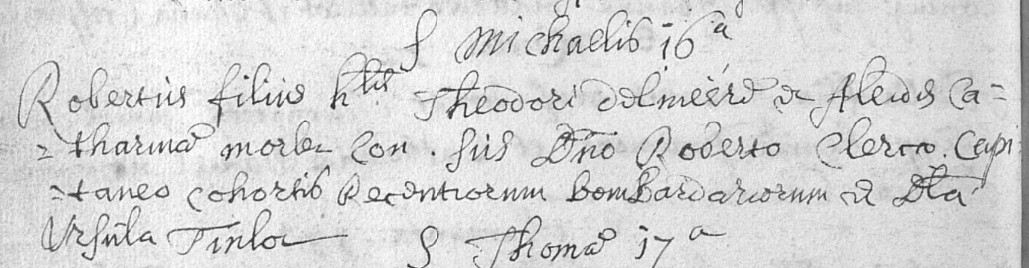 S Michaelis 16a
Robertus filius hlis Theodori delmeire et Aleidis Ca=
=tharinæ morle Con. sus Dño Roberto Clerco. Capi
=taneo cohortis Recentiorum bombardariorum et Dla
Ursula Tinlo S Thomæ 17a